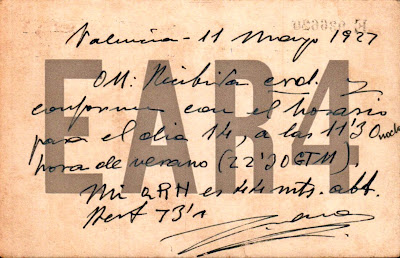 Valencia - 11 Mayo 1927
EAR4
OM: Recibida crd. y
conforme con el horario
para el dia 14, a las 11'30 noche
hora de verano (22'30 GTM).
Mi QRH es 44 mts. abt.
Best 73's